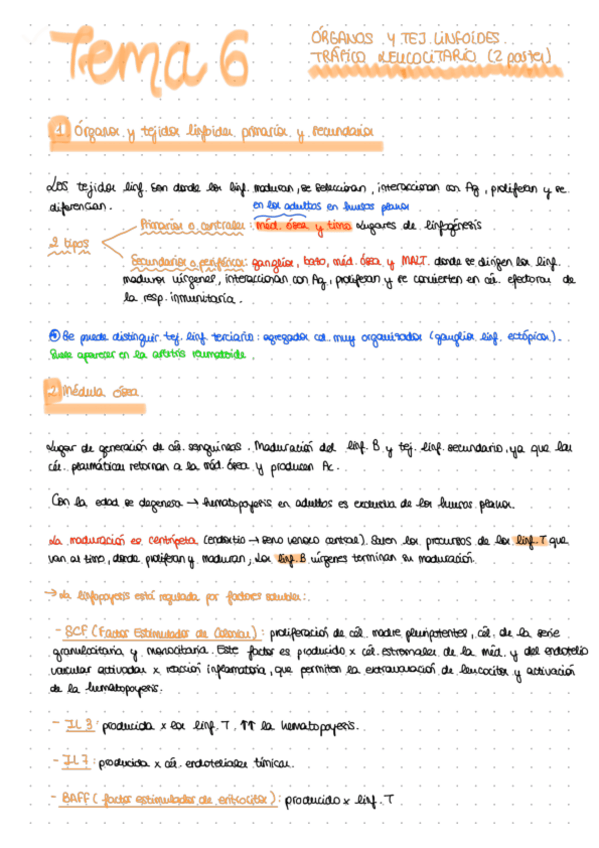 Tema 6
ÓRGANOS Y TEJ. LINFOIDES.
TRÁFICO LEUCOCITARIO (2 partes)
1 Órganos y tejidos linfoides primarios y secundarios
Los tejidos linf. son donde los linf. maduran, se seleccionan, interaccionan con Ag, proliferan y se
diferencian.
en los adultos en huesos planos
2 tipos
Primarios o centrales: méd. ósea y timo. Lugares de linfogénesis
Secundarios o periféricos: ganglios, bazo, méd. ósea y MALT. donde se dirigen los linf.
maduros vírgenes, interaccionan con Ag, proliferan y se convierten en cél. efectoras de
la resp. inmunitaria.
Se puede distinguir tej. linf. terciario: agregados cél. muy organizados (ganglios linf. ectópicos).
Puede aparecer en la artritis reumatoide.
2 Médula ósea.
Lugar de generación de cél. sanguíneas. Maduración del linf. B y tej. linf. secundario, ya que las
cél. plasmáticas retornan a la méd. ósea y producen Ac.
Con la edad se degenera → hematopoyesis en adultos es exclusiva de los huesos planos.
La maduración es centrípeta (endostio → seno venoso central). Salen los precursores de los linf. T que
van al timo, donde proliferan y maduran, Los linf. B vírgenes terminan su maduración.
→ La linfopoyesis está regulada por factores solubles:
- SCF (Factor Estimulador de Colonias): proliferación de cél. madre pluripotentes, cél. de la serie
granulocitaria y monocitaria. Este factor es producido x cél. estromales de la méd. y del endotelio
vascular activadas x reacción inflamatoria, que permiten la extravasación de leucocitos y activación
de la hematopoyesis.
- IL 3: producida x los linf. T. ↑↑ la hematopoyesis.
- IL 7: producida x cél. endoteliales tímicas.
- BAFF (factor estimulador de eritrocitos): producido x linf. T